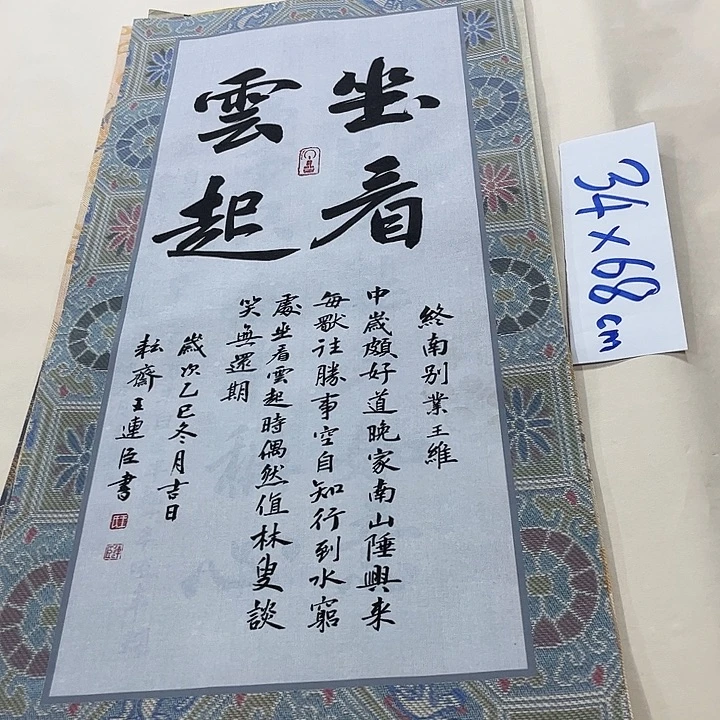 坐看
雲起
終南別業王維
中歲頗好道晚家南山陲興来
每獣往勝事空自知行到水窮
處坐看雲起時偶然值林叟談
笑無還期
歲次乙巳冬月吉日
耘齋王連臣書
34×68cm